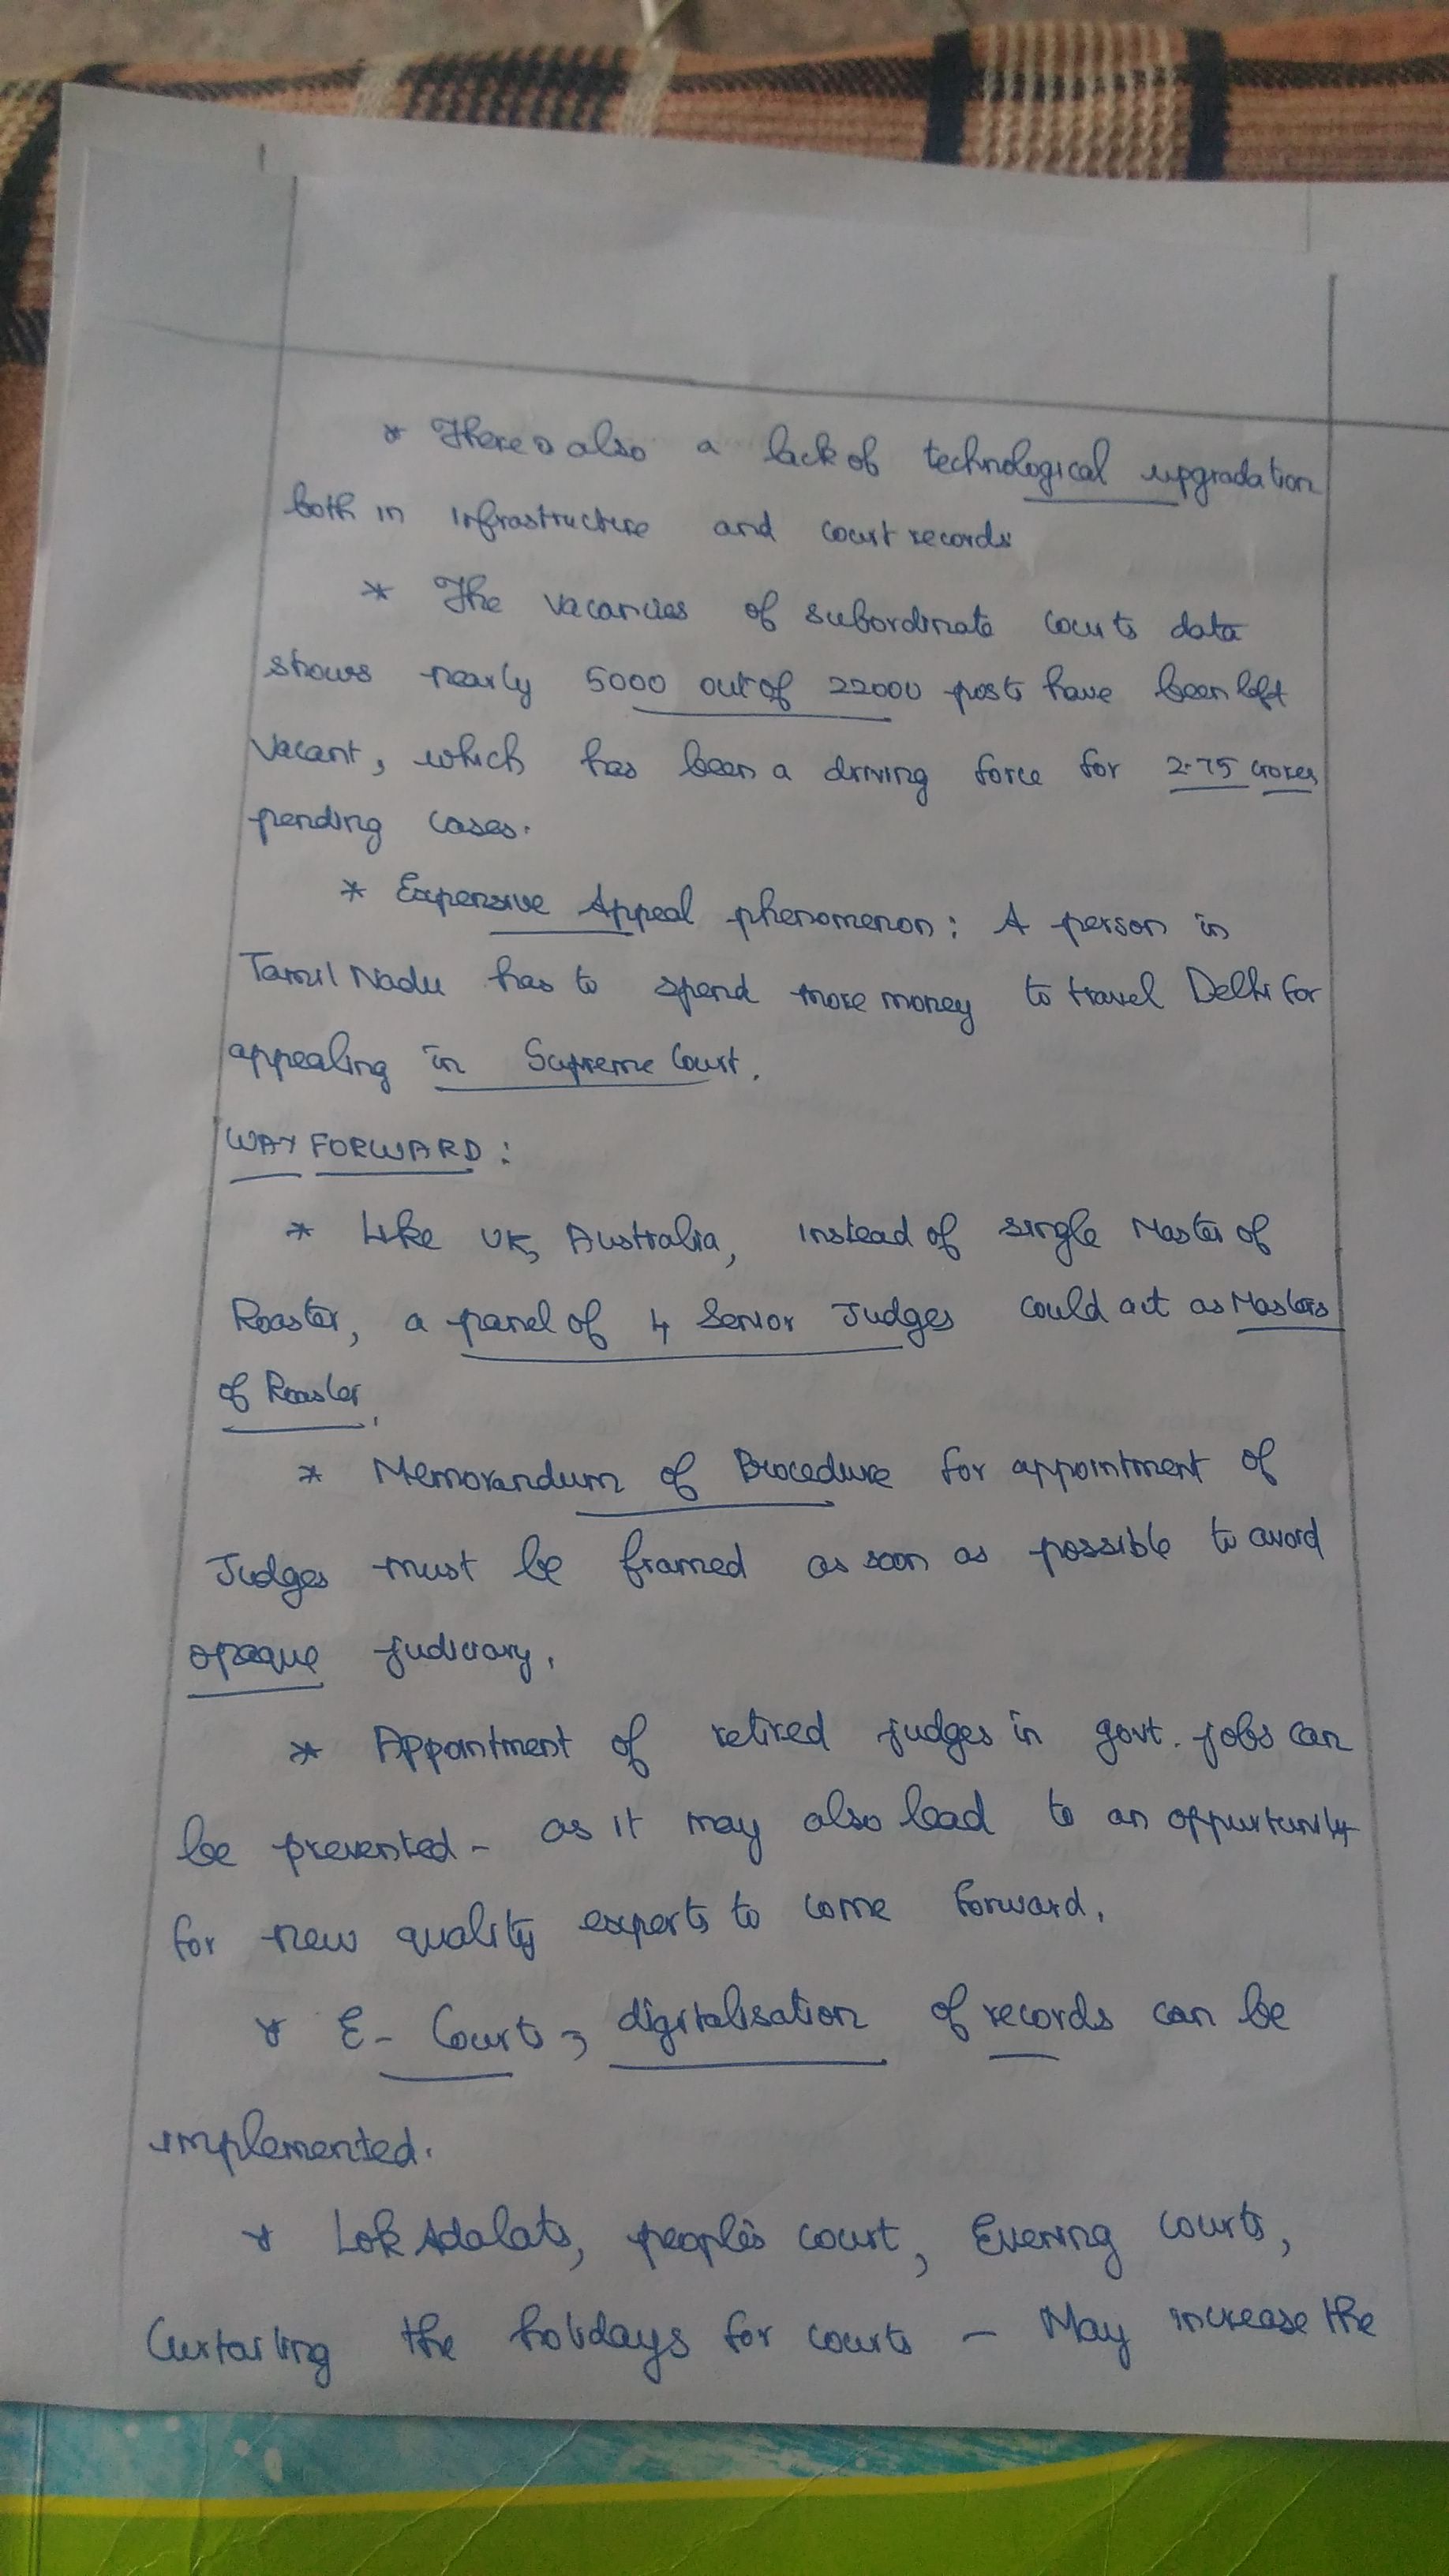 * There is also a lack of technological upgradation
both in infrastructure and court records
* The vacancies of subordinate courts data
shows nearly 5000 out of 22000 posts have been left
vacant, which has been a driving force for 2.75 crores
pending cases.
* Expensive Appeal phenomenon: A person in
Tamil Nadu has to spend more money to travel Delhi for
appealing in Supreme Court.
WAY FORWARD:
* Like UK, Australia, instead of single Master of
Roaster, a panel of 4 Senior Judges could act as Masters
of Roaster.
* Memorandum of Procedure for appointment of
Judges must be framed as soon as possible to avoid
opaque judiciary.
* Appointment of retired judges in govt. jobs can
be prevented - as it may also lead to an oppurtunity
for new quality experts to come forward.
* E-Courts, digitalisation of records can be
implemented.
* Lok Adalats, people's court, Evening courts,
Curtailing the holidays for courts - May increase the